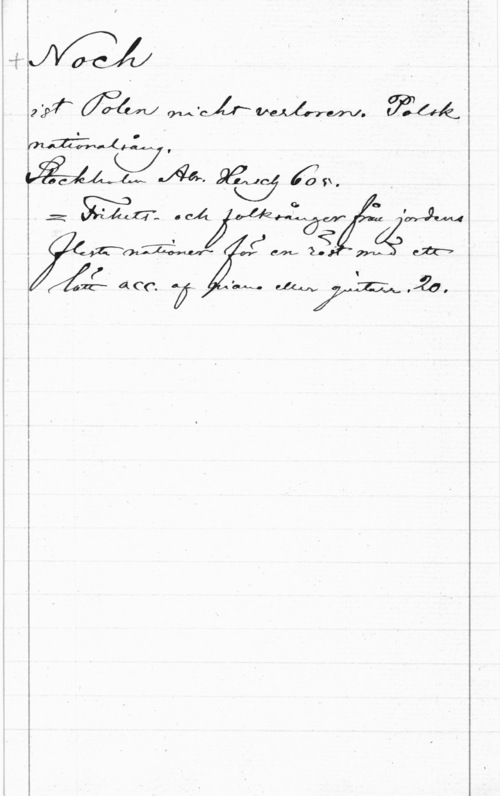 + Noch
ist Polen nicht verloren. Polsk
nationalsång.
Stockholm Abr. Hirsch 60r.
= Frihets- och folksånger från jordens
flesta nationer för en röst med ett
lätt acc. af piano eller guitarr. 20.